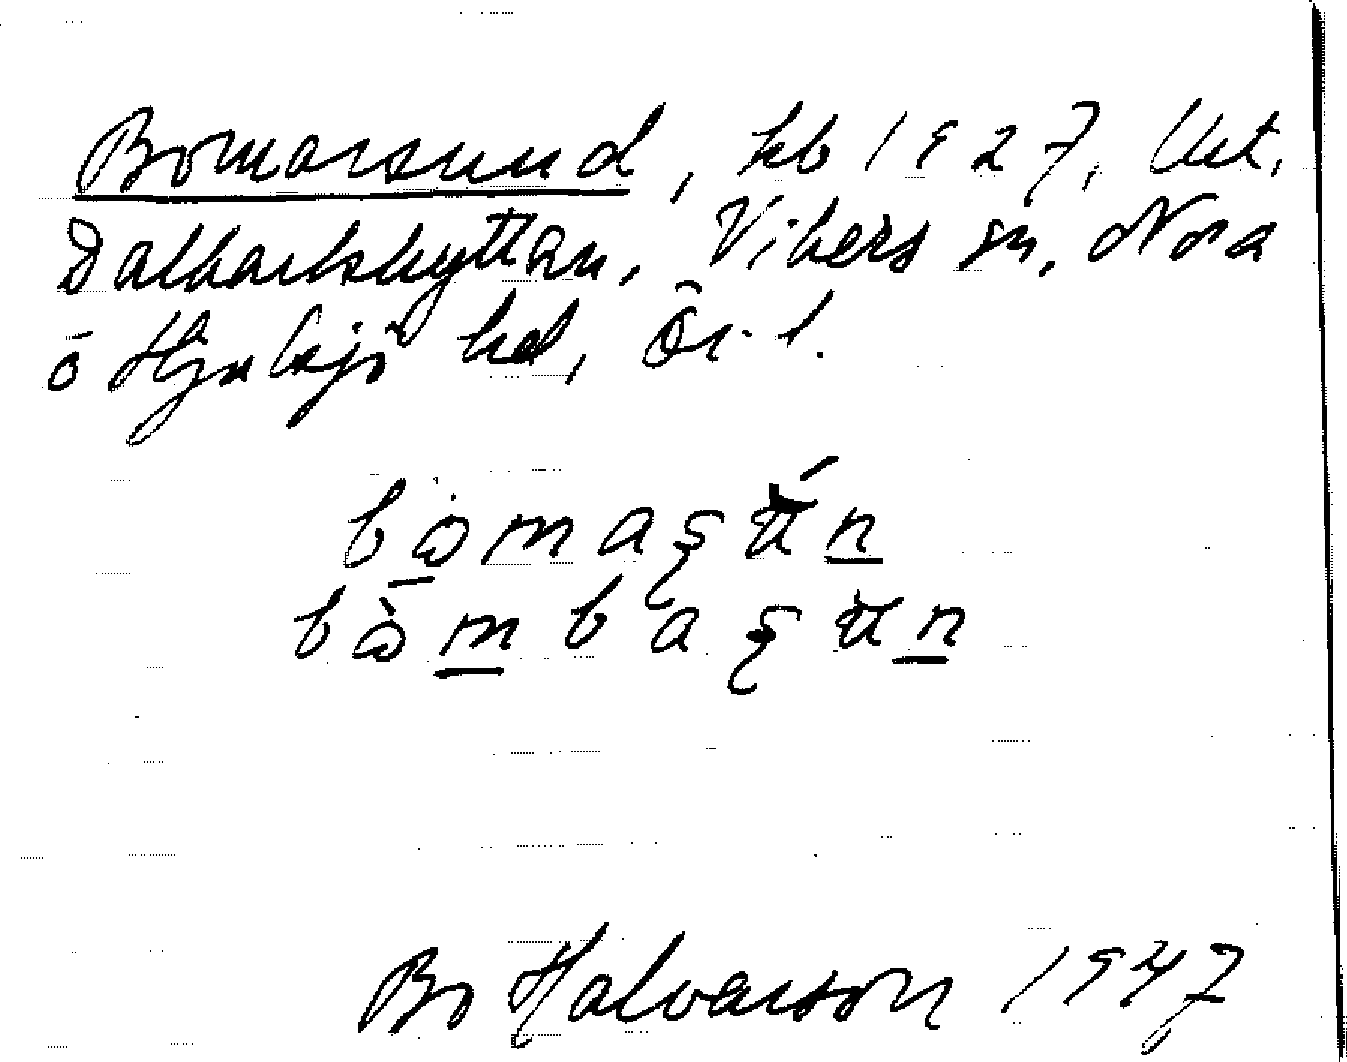 Bomarsund, hb 1927, Ut,
Dalkarlshyttan, Vikers sn, Nora
o Hjulsjö hd, Ör. l.
bo̱maʂu̇́ṉ
bòm̱baʂu̇ṉ
Bo Halvarson 1947